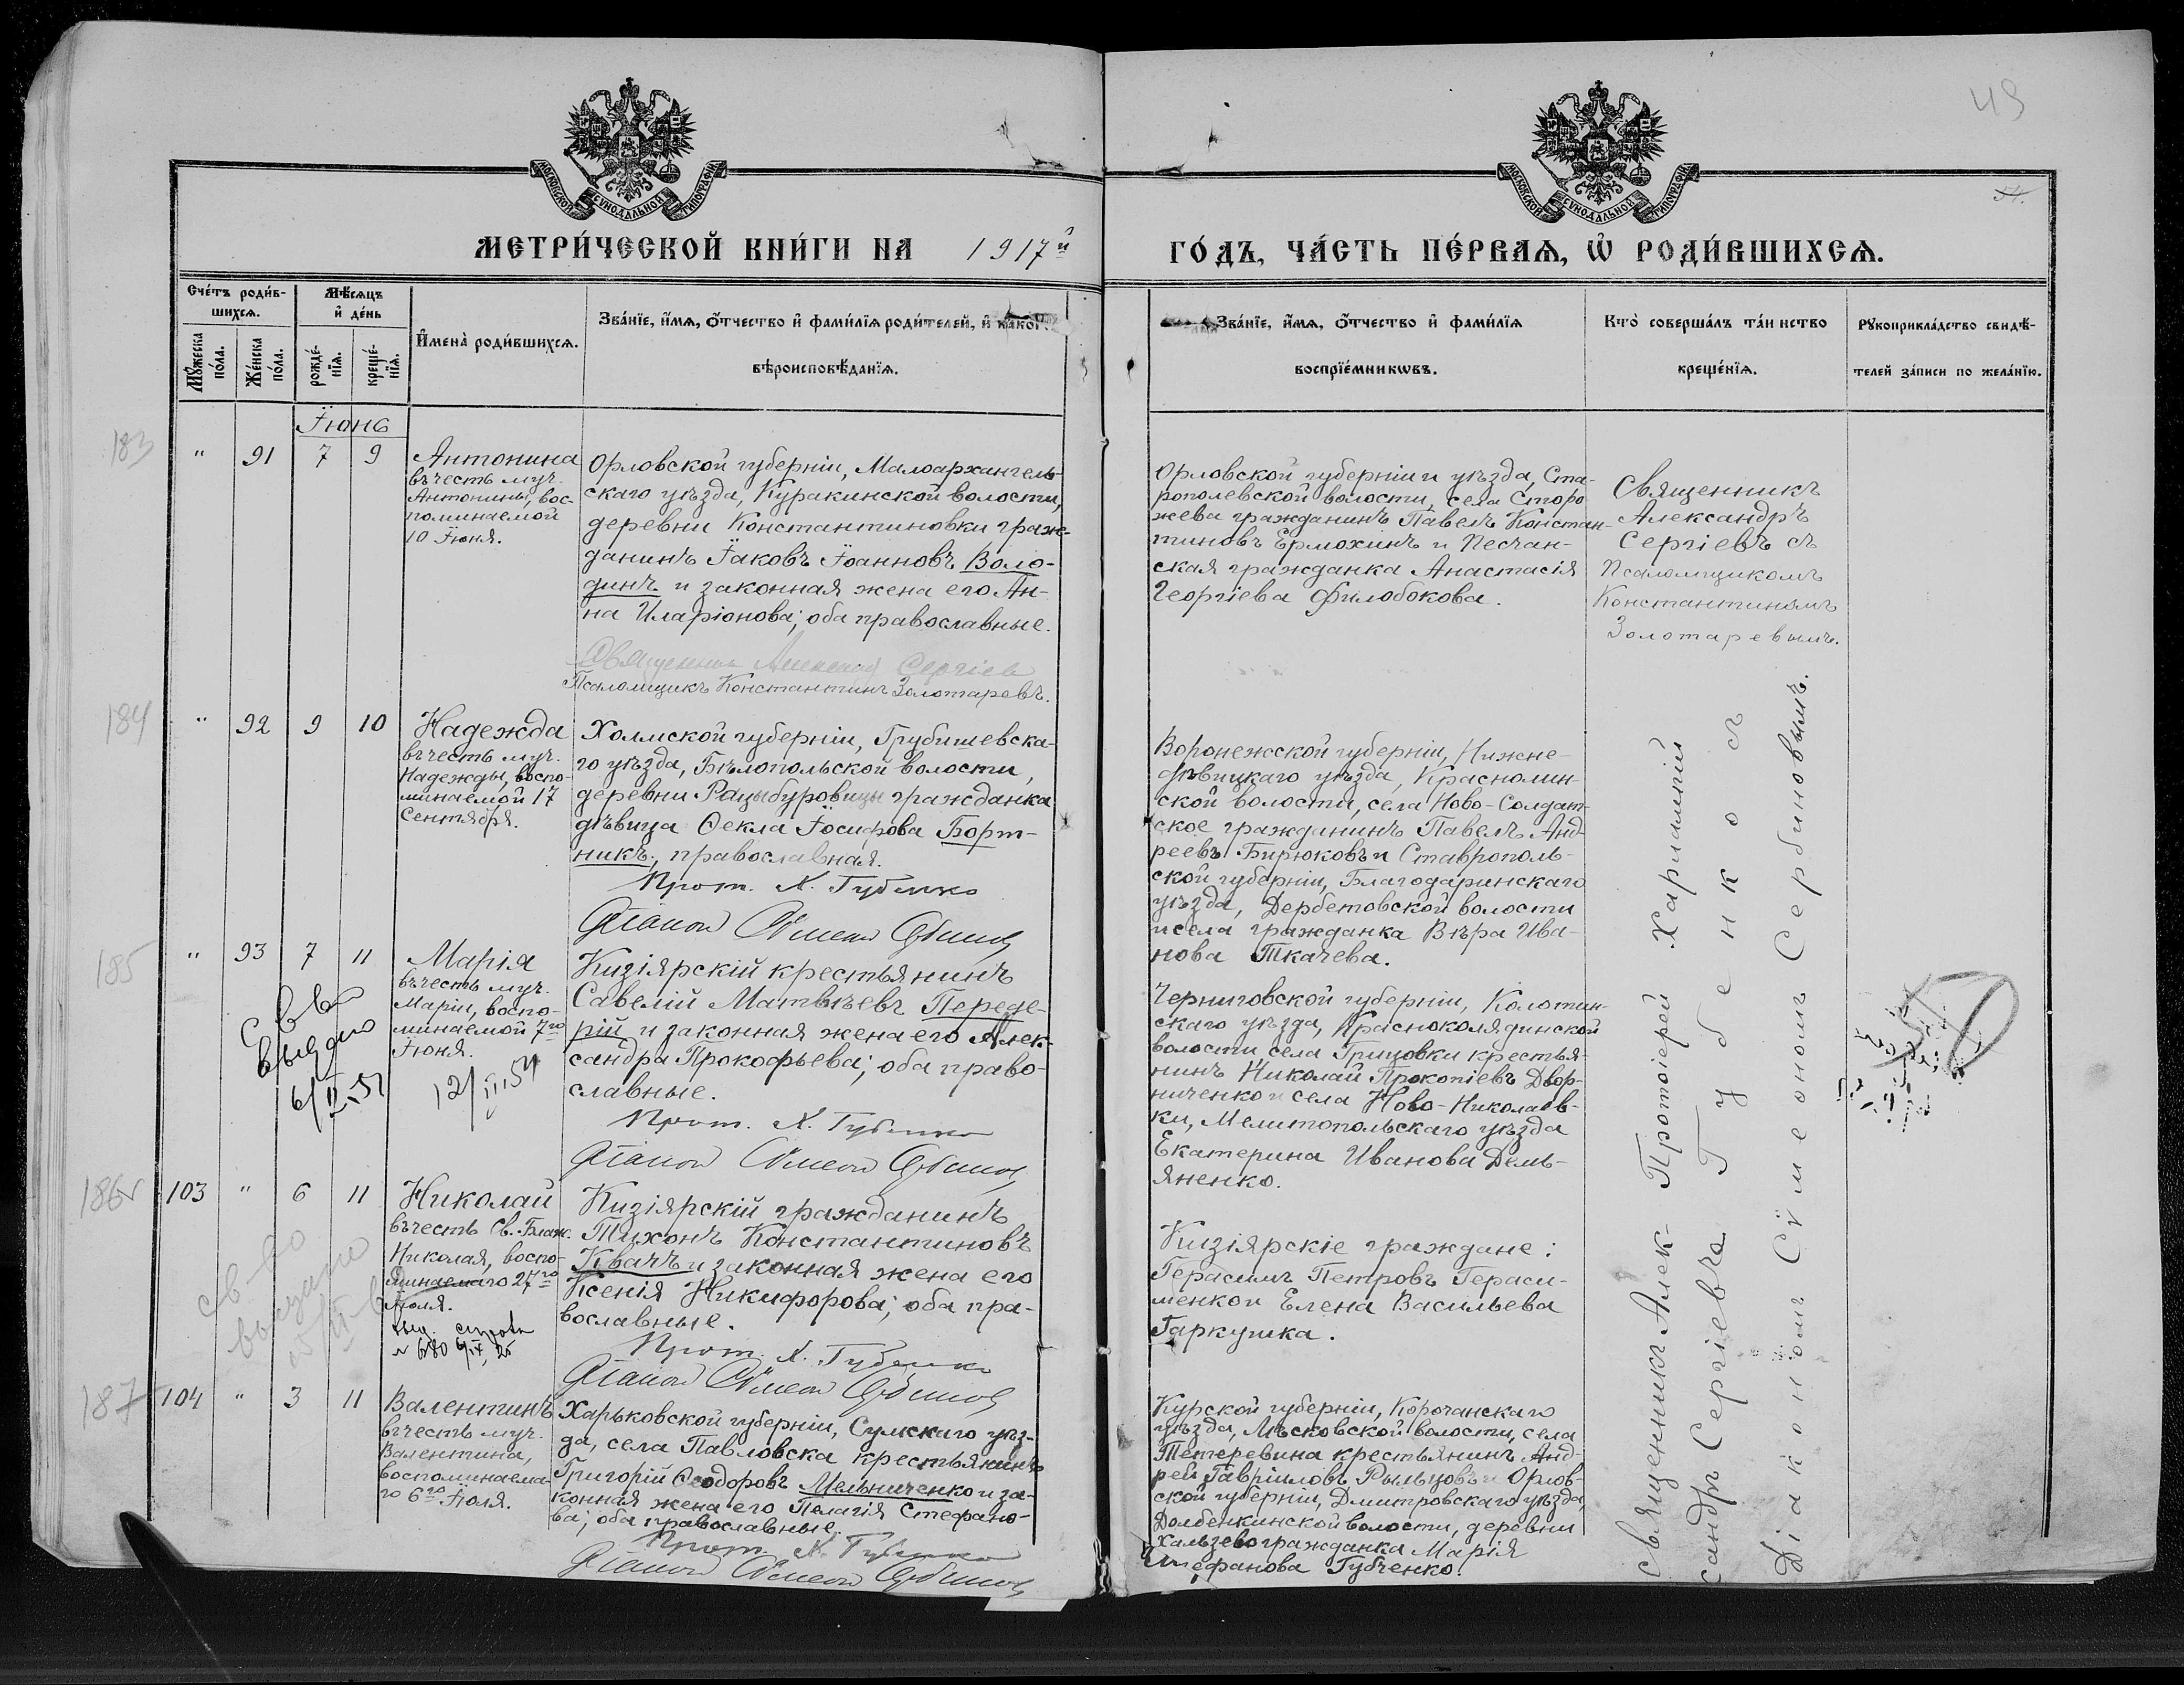 49
54.
МОСКОВСКОЙ СѴНОДАЛЬНОЙ ТИПОГРАФІИ
МОСКОВСКОЙ СѴНОДАЛЬНОЙ ТИПОГРАФІИ
МЕТРИ́ЧЕСКОЙ КНИ́ГИ НА 1917й ГО́ДЪ, ЧА́СТЬ ПЕ́РВАѦ, Ѡ РОДИ́ВШИХСѦ.
Сче́тъ роди́в-
шихсѧ.
Мꙋ́жеска
по́ла.
Же́нска
по́ла.
Мѣ́сѧцъ
и҆ де́нь
рожде́-
нїѧ.
креще́-
нїѧ.
И҆мена̀ роди́вшихсѧ.
Зва́нїе, и҆́мѧ, ѻ҆́тчество и҆ фами́лїѧ роди́телей, и҆ како́г
вѣроисповѣ́данїѧ.
Зва́нїе, и҆́мѧ, ѻ҆́тчество и҆ фами́лїѧ
воспрїе́мникѡвъ.
Кто̀ соверша́лъ та́инство
креще́нїѧ.
Рꙋкоприкла́дство свидѣ́-
телей за́писи по жела́нїю.
Іюнь
183
" 91 7 9
Антонина
въ честь муч.
Антонины, вос-
поминаемой
10 Іюня.
Орловской губерніи, Малоархангель-
скаго уѣзда, Куракинской волости,
деревни Константиновки граж-
данинъ Іаковъ Іоанновъ Воло-
динъ и законная жена его Ан-
на Иларіонова; оба православные.
Священник Александр Сергіев
Псаломщикъ Константинъ Золотаревъ.
Орловской губерніи и уѣзда, Ста-
рополевской волости, села Сторо-
жева гражданинъ Павелъ Констан-
тиновъ Ермохинъ и Песчан-
ская гражданка Анастасія
Георгіева Филобокова.
Священникъ
Александръ
Сергіевъ съ
Псаломщикомъ
Константиномъ
Золотаревымъ.
184
" 92 9 10
Надежда
въ честь муч.
Надежды, воспо-
минаемой 17
Сентября.
Холмской губерніи, Грубишевска-
го уѣзда, Бѣлопольской волости,
деревни Рацыбуровицы гражданка
дѣвица Ѳекла Іосифова Борт-
никъ, православная.
Прот. Х. Губенко
Діакон Сѵмеон
Воронежской губерніи, Нижне-
дѣвицкаго уѣзда, Краснолип-
ской волости, села Ново-Солдат-
ское гражданинъ Павелъ Анд-
реевъ Бирюковъ и Ставрополь-
ской губерніи, Благодаринскаго
уѣзда, Дербетовской волости
и села гражданка Вѣра Ива-
нова Ткачева.
185
" 93 7 11
Марія
въ честь муч.
Маріи, воспо-
минаемой 7го
Іюня.
св-во
выдано
12/III 54
Кизіярскій крестьянинъ
Савелій Матвѣевъ Переде-
рій и законная жена его Алек-
сандра Прокофьева; оба право-
славные.
Прот. Х. Губенко
Діакон Сѵмеон
Черниговской губерніи, Колотин-
скаго уѣзда, Красноколядинской
волости села Грицовки крестья-
нинъ Николай Прокопіевъ Двор-
ниченко и села Ново-Николаев-
ки, Мелитопольскаго уѣзда
Екатерина Иванова Демь-
яненко.
186
103 " 6 11
Николай
въ честь Св. Блаж.
Николая, воспо-
минаемаго 27го
Іюля.
выд. справк
№ 680
св-во
выдано
Кизіярскій гражданинъ
Тихонъ Константиновъ
Квачъ и законная жена его
Ксенія Никифорова; оба пра-
вославные.
Прот. Х. Губенко
Діакон Сѵмеон
Кизіярскіе граждане:
Герасимъ Петровъ Гераси-
менко и Елена Васильева
Гаркушка.
187
104 " 3 11
Валентинъ
въ честь муч.
Валентина,
воспоминаема-
го 6го Іюля.
Харьковской губерніи, Сумскаго уѣз-
да, села Павловска крестьянинъ
Григорій Ѳеодоровъ Мельниченко и за-
конная жена его Пелагія Стефано-
ва; оба православные.
Прот. Х. Губенко
Діакон Сѵмеон
Курской губерніи, Корочанскаго
уѣзда, Лѣсковской волости, села
Тетеревина крестьянинъ Анд-
рей Гавріиловъ Рыльцовъ и Орлов-
ской губерніи, Дмитровскаго уѣзда,
Долбенкинской волости, деревни
Хальзево гражданка Марія
Стефанова Губченко.
Священникъ Алек- Протоіерей Харлампій
сандръ Сергіевъ Губенко съ
Діакономъ Сѵмеономъ Сербиновымъ.